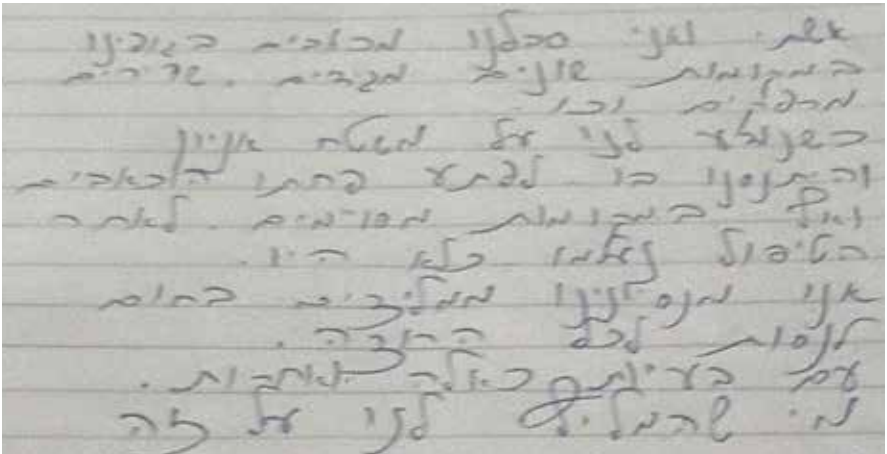 אשתי ואני סבלנו מכאבים בגופינו
במקומות שונים מגידים. שרירים
מרפקים וכו'.
כשנודע לנו על משטח אניון
והתנסנו בו לפתע פחתו הכאבים
ואף במקומות מסוימים. לאחר
הטיפול נעלמו כלא היו.
אני מנסיוני ממליץ בחום
לנסות לכל החברה.
עם בעיות כאלה ואחרות.
מי שהמליץ לנו על זה